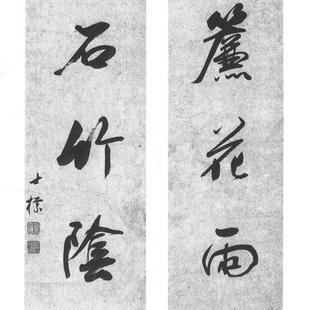 簾花雨
石竹陰
士標